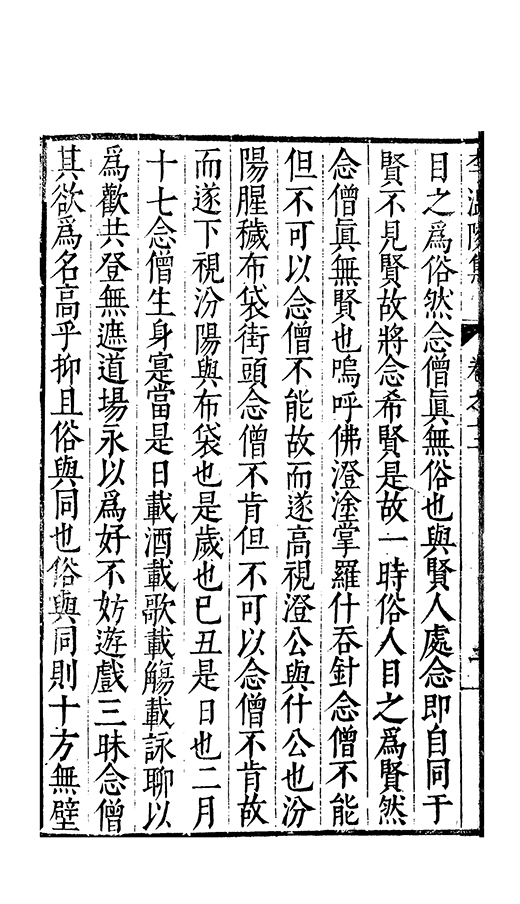 李溫陵集 卷之十二
目之爲俗然念僧眞無俗也與賢人處念即自同于
賢不見賢故將念希賢是故一時俗人目之爲賢然
念僧眞無賢也嗚呼佛澄塗掌羅什吞針念僧不能
但不可以念僧不能故而遂高視澄公與什公也汾
陽腥穢布袋街頭念僧不肯但不可以念僧不肯故
而遂下視汾陽與布袋也是歲也己丑是日也二月
十七念僧生身寔當是日載酒載歌載觴載詠聊以
爲歡共登無遮道場永以爲好不妨遊戲三昧念僧
其欲爲名高乎抑且俗與同也俗與同則十方無壁